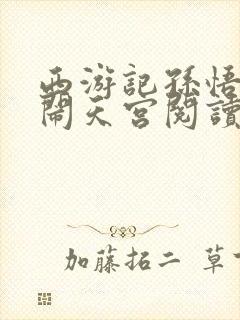 西游記孫悟
鬧天宮閱讀
加藤拓二 草